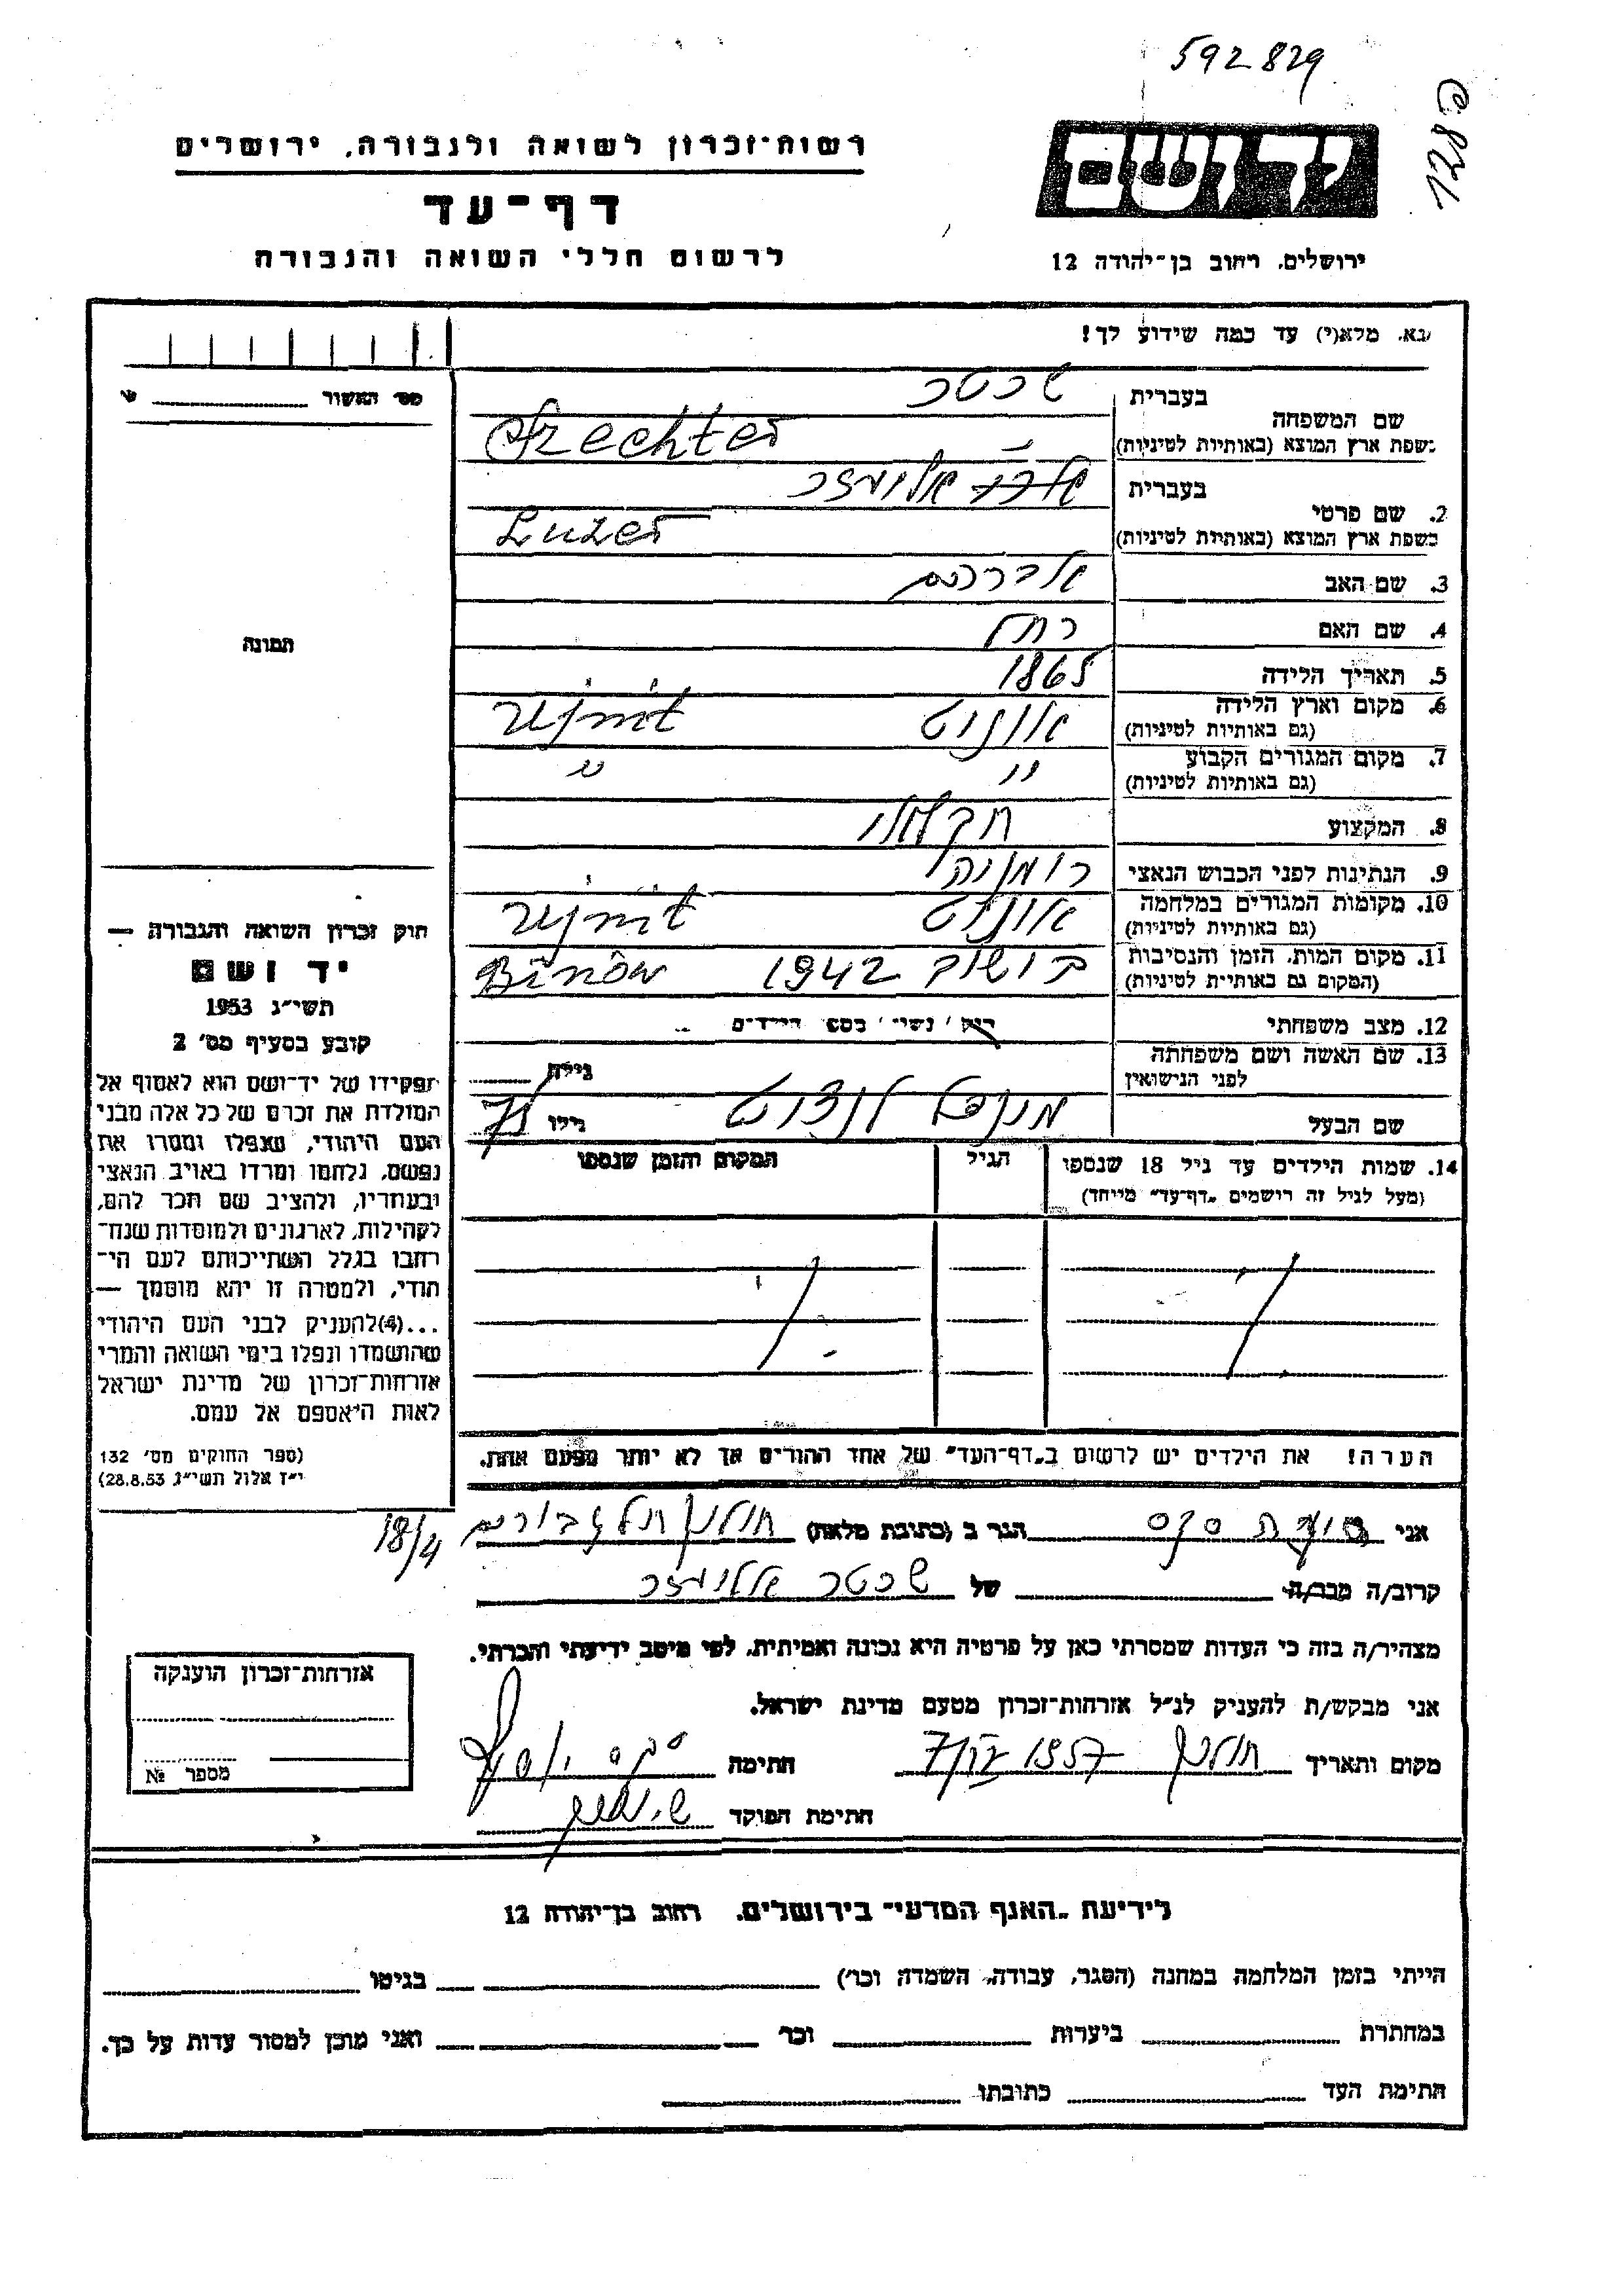 592829
128
רשות-זכרון לשואה ולגבורה, ירושלים
דף-עד
לרשום חללי השואה והגבורה
ירושלים, רחוב בן-יהודה 12
נא. מלא(י) עד כמה שידוע לך!
מס' האשור
שם המשפחה
בעברית שכטר
בשפת ארץ המוצא (באותיות לטיניות) Szechter
2. שם פרטי
בעברית אליעזר
בשפת ארץ המוצא (באותיות לטיניות) Luzer
3. שם האב אברהם
4. שם האם רחל
5. תאריך הלידה 1865
6. מקום וארץ הלידה
(גם באותיות לטיניות)
7. מקום המגורים הקבוע
(גם באותיות לטיניות)
8. המקצוע חקלאי
9. הנתינות לפני הכבוש הנאצי רומניה
10. מקומות המגורים במלחמה
(גם באותיות לטיניות)
11. מקום המות, הזמן והנסיבות 1942
(המקום גם באותיות לטיניות)
12. מצב משפחתי רוק/ נשוי/ מספר הילדים
13. שם האשה ושם משפחתה
לפני הנישואין
גילה
שם הבעל
גילו
14. שמות הילדים עד גיל 18 שנספו
(מעל לגיל זה רושמים "דף-עד" מיוחד)
הגיל
המקום והזמן שנספו
הערה! את הילדים יש לרשום ב"דף-העד" של אחד ההורים אך לא יותר מפעם אחת.
תמונה
חוק זכרון השואה והגבורה —
יד ושם
תשי"ג 1953
קובע בסעיף מס' 2
תפקידו של יד-ושם הוא לאסוף אל
המולדת את זכרם של כל אלה מבני
העם היהודי, שנפלו ומסרו את
נפשם, נלחמו ומרדו באויב הנאצי
ובעוזריו, ולהציב שם וזכר להם,
לקהילות, לארגונים ולמוסדות שנח-
רבו בגלל השתייכותם לעם הי-
הודי, ולמטרה זו יהא מוסמך —
...(4)להעניק לבני העם היהודי
שהושמדו ונפלו בימי השואה והמרי
אזרחות-זכרון של מדינת ישראל
לאות היאספם אל עמם.
(ספר החוקים מס' 132
י"ז אלול תשי"ג 28.8.53)
אני הגר ב (כתובת מלאה) חולון 18/4
קרוב/ה מכר/ה של שכטר אליעזר
מצהיר/ה בזה כי העדות שמסרתי כאן על פרטיה היא נכונה ואמיתית, לפי מיטב ידיעתי והכרתי.
אני מבקש/ת להעניק לנ"ל אזרחות-זכרון מטעם מדינת ישראל.
מקום ותאריך חולון 1957 חתימה
חתימת הפוקד
אזרחות-זכרון הוענקה
מספר №
לידיעת "האגף המדעי" בירושלים, רחוב בן-יהודה 12
הייתי בזמן המלחמה במחנה (הסגר, עבודה, השמדה וכו') בגיטו
במחתרת ביערות וכו' ואני מוכן למסור עדות על כך.
חתימת העד כתובתו